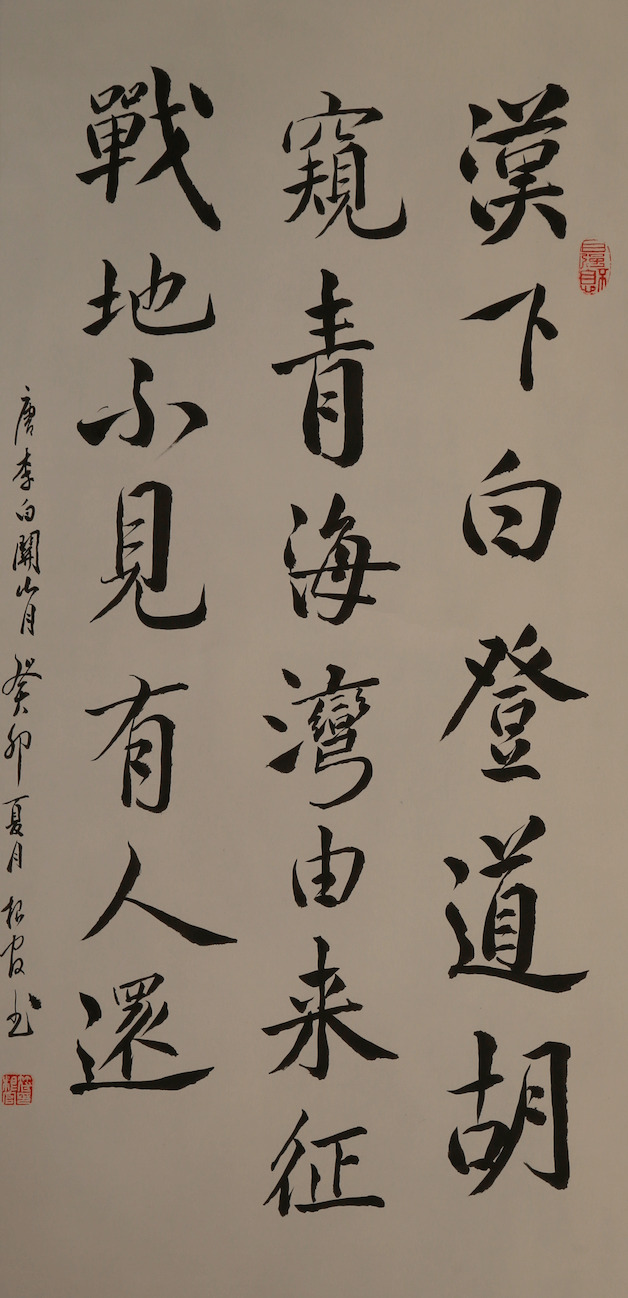 漢下白登道胡
窺青海灣由来征
戰地不見有人還
唐李白關山月癸卯夏月松官书